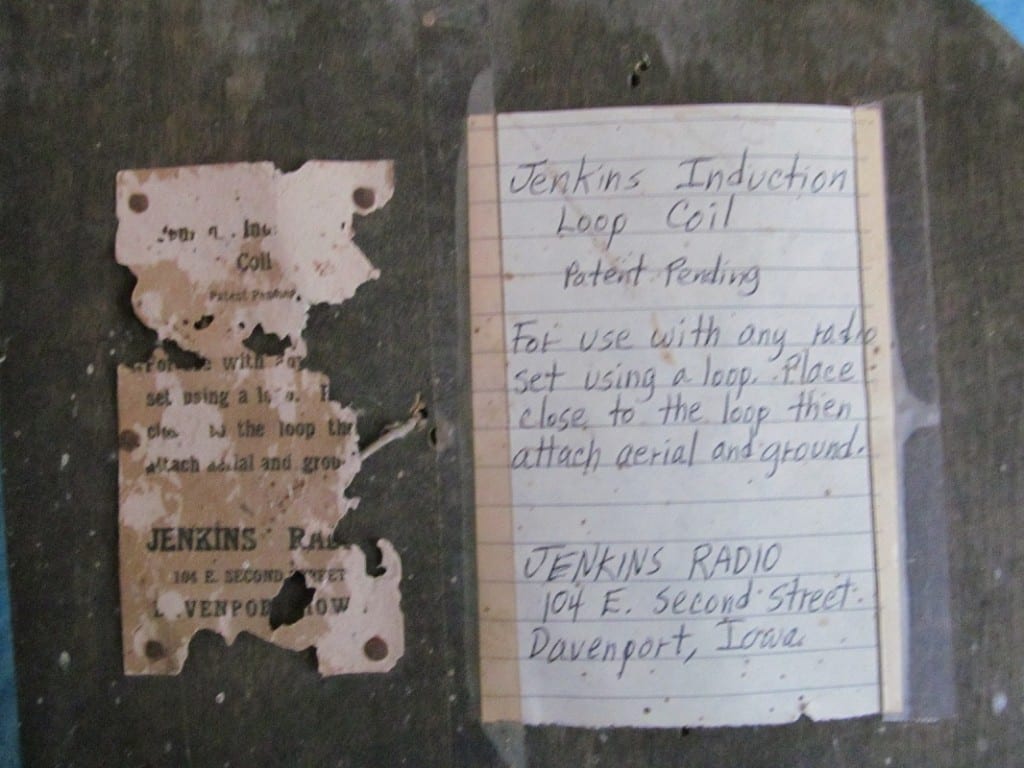 Coil
Patent Pending
For use with any
set using a
to the loop the
attach aerial and grou
JENKINS RAD
104 E. SECOND STREET
DAVENPORT IOWA
Jenkins Induction
Loop Coil
Patent Pending
For use with any radio
set using a loop. Place
close to the loop then
attach aerial and ground.
JENKINS RADIO
104 E. Second Street.
Davenport, Iowa